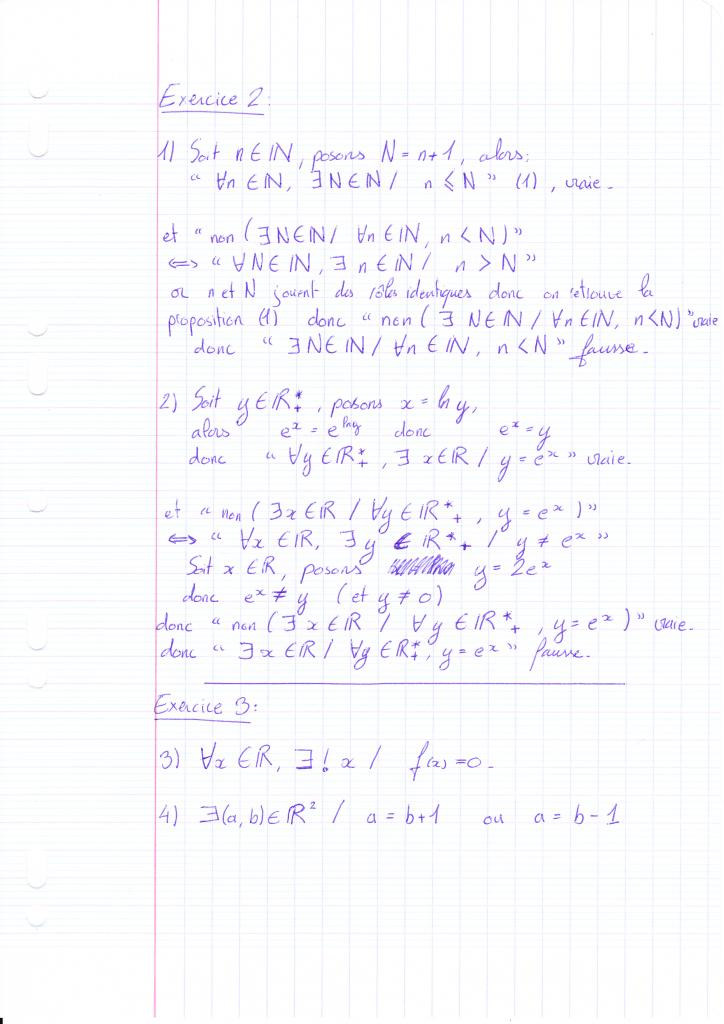 Exercice 2:
1) Soit n ∈ ℕ, posons N = n+1, alors:
" ∀n ∈ ℕ, ∃ N ∈ ℕ / n ⩽ N " (1), vraie.
et " non ( ∃ N ∈ ℕ / ∀n ∈ ℕ, n < N ) "
⟺ " ∀ N ∈ ℕ, ∃ n ∈ ℕ / n > N "
or n et N jouent des rôles identiques donc on retrouve la
proposition (1) donc " non ( ∃ N ∈ ℕ / ∀n ∈ ℕ, n < N) " vraie
donc " ∃ N ∈ ℕ / ∀n ∈ ℕ, n < N " fausse.
2) Soit y ∈ ℝ*₊, posons x = ln y,
alors eˣ = e^(ln y) donc eˣ = y
donc " ∀y ∈ ℝ*₊, ∃ x ∈ ℝ / y = eˣ " vraie.
et " non ( ∃ x ∈ ℝ / ∀y ∈ ℝ*₊, y = eˣ ) "
⟺ " ∀x ∈ ℝ, ∃ y ∈ ℝ*₊ / y ≠ eˣ "
Soit x ∈ ℝ, posons y = 2eˣ
donc eˣ ≠ y (et y ≠ 0)
donc " non ( ∃ x ∈ ℝ / ∀ y ∈ ℝ*₊, y = eˣ ) " vraie.
donc " ∃ x ∈ ℝ / ∀y ∈ ℝ*₊, y = eˣ " fausse.
Exercice 3:
3) ∀x ∈ ℝ, ∃! x / f(x) = 0.
4) ∃(a, b) ∈ ℝ² / a = b+1 ou a = b - 1